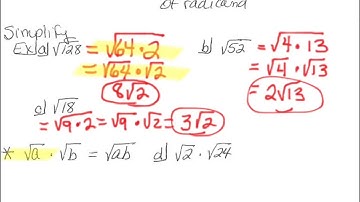 of radicand
Simplify
Ex: a) √128 = √64·2
= √64·√2
8√2
b) √52 = √4·13
= √4·√13
2√13
c) √18
= √9·2 = √9·√2 = 3√2
* √a·√b = √ab d) √2·√24